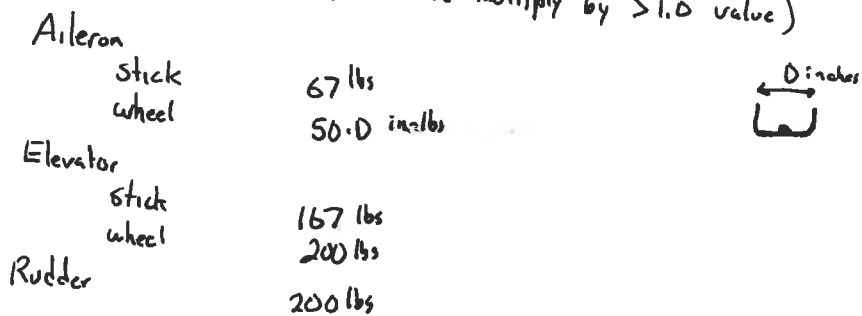 multiply by >1.0 value)
Aileron
stick 67 lbs
wheel 50·D in-lbs
D inches
Elevator
stick 167 lbs
wheel 200 lbs
Rudder
200 lbs